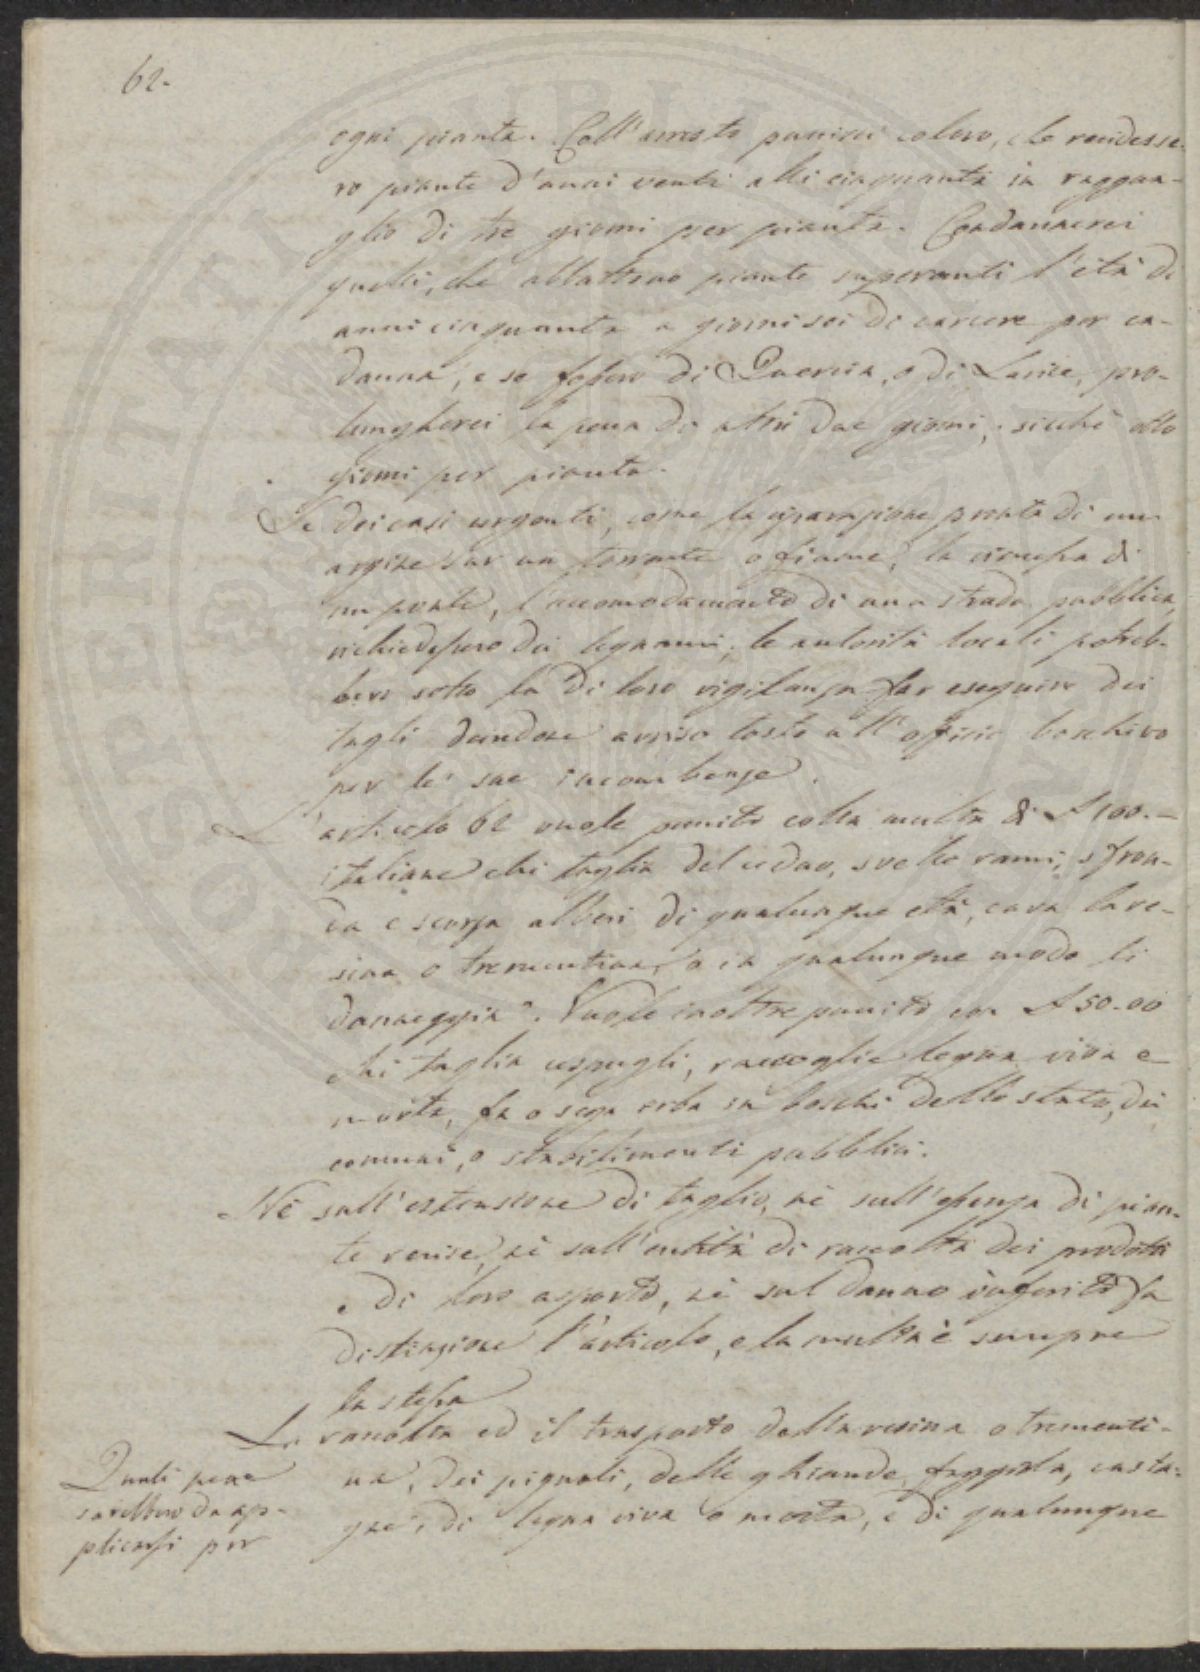 62.
ogni pianta. Coll'arresto punirei coloro, che rendesse-
ro piante d'anni venti alli cinquanta in raggua-
glio di tre giorni per pianta. Condannerei
quelli, che abbattono piante superanti l'età di
anni cinquanta a giorni sei di carcere per ca-
dauna, e se fossero di Quercia, o di Larice, pro-
lungherei la pena di altri due giorni, sicchè otto
giorni per pianta.
Se dei casi urgenti, come la riparazione pronta di un
argine sur un torrente o fiume, la rimessa di
un ponte, l'accomodamento di una strada pubblica,
richiedessero dei legnami, le autorità locali potreb-
bero sotto la di loro vigilanza far eseguire dei
tagli dandone avviso tosto all'officio boschivo
per le sue incombenze.
L'articolo 62 vuole punito colla multa di £ 100.-
italiane chi taglia del ceduo, svelle rami, sfron-
da e scorza alberi di qualunque età, cava la re-
sina o trementina, o in qualunque modo li
danneggia. Vuole inoltre punito con £ 50.00
chi taglia cespugli, raccoglie legna viva e
morta, fa o sega erba in boschi dello stato, dei
comuni, o stabilimenti pubblici.
Nè sull'estensione di taglio, nè sull'essenza di pian-
te recise, nè sull'entità di raccolta dei prodotti
e di loro asporto, nè sul danno inferito fa
distinzione l'articolo, e la multa è sempre
la stessa
La raccolta ed il trasporto della resina o trementi-
na, dei pignoli, delle ghiande, faggiola, casta-
gne, di legna viva o morta, e di qualunque
Quali pene
sarebbero da ap-
plicarsi per